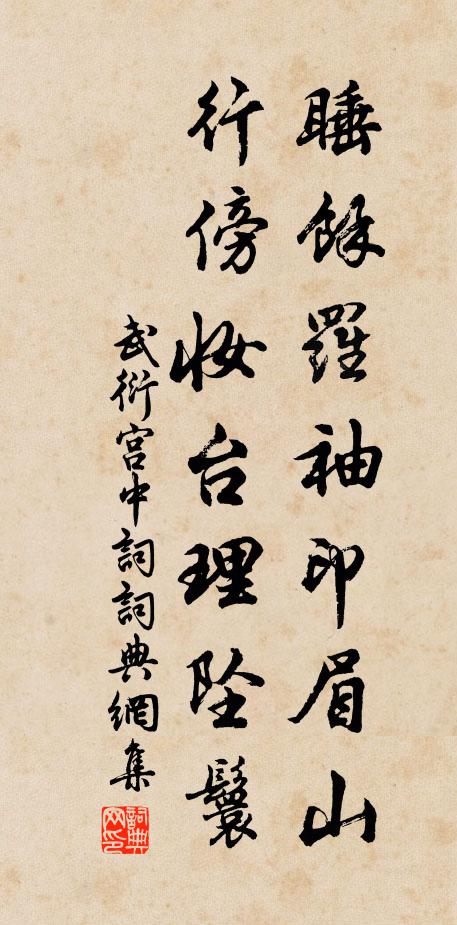 睡餘羅袖印眉山
行傍妝台理墜鬟
武衍宮中詞詞典網集
詞典網印